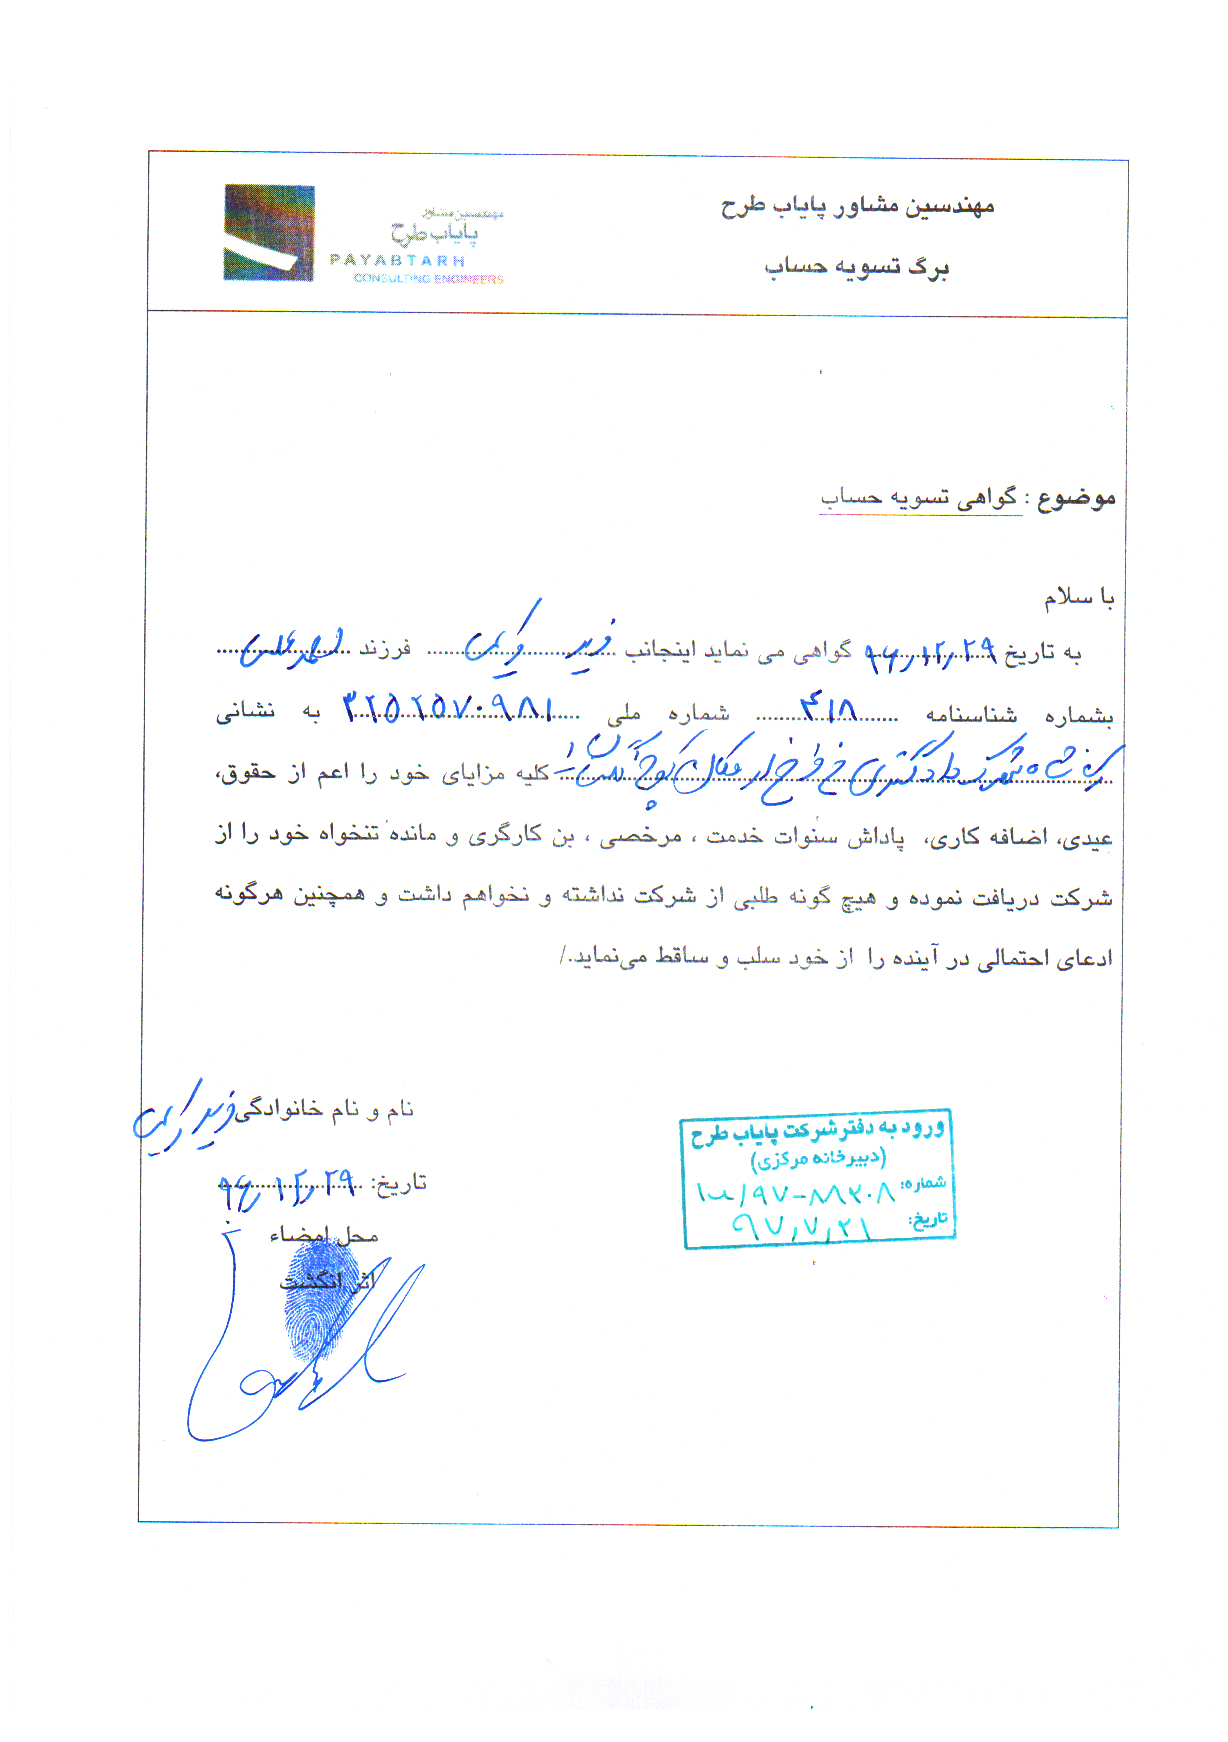 مهندسین مشاور پایاب طرح
برگ تسویه حساب
مهندسین مشاور
پایاب طرح
PAYABTARH
CONSULTING ENGINEERS
موضوع : گواهی تسویه حساب
با سلام
به تاریخ ۹۶/۱۲/۲۹ گواهی می نماید اینجانب فرید کریمی فرزند
بشماره شناسنامه ۴۱۸ شماره ملی ۳۲۵۲۵۷۰۹۸۱ به نشانی
شهرک دادگستری کلیه مزایای خود را اعم از حقوق،
عیدی، اضافه کاری، پاداش سنوات خدمت ، مرخصی ، بن کارگری و مانده تنخواه خود را از
شرکت دریافت نموده و هیچ گونه طلبی از شرکت نداشته و نخواهم داشت و همچنین هرگونه
ادعای احتمالی در آینده را از خود سلب و ساقط می‌نماید./
نام و نام خانوادگی فرید کریمی
تاریخ: ۹۶/۱۲/۲۹
محل امضاء
اثر انگشت
ورود به دفتر شرکت پایاب طرح
(دبیرخانه مرکزی)
شماره:
تاریخ: ۹۷/۷/۲۱